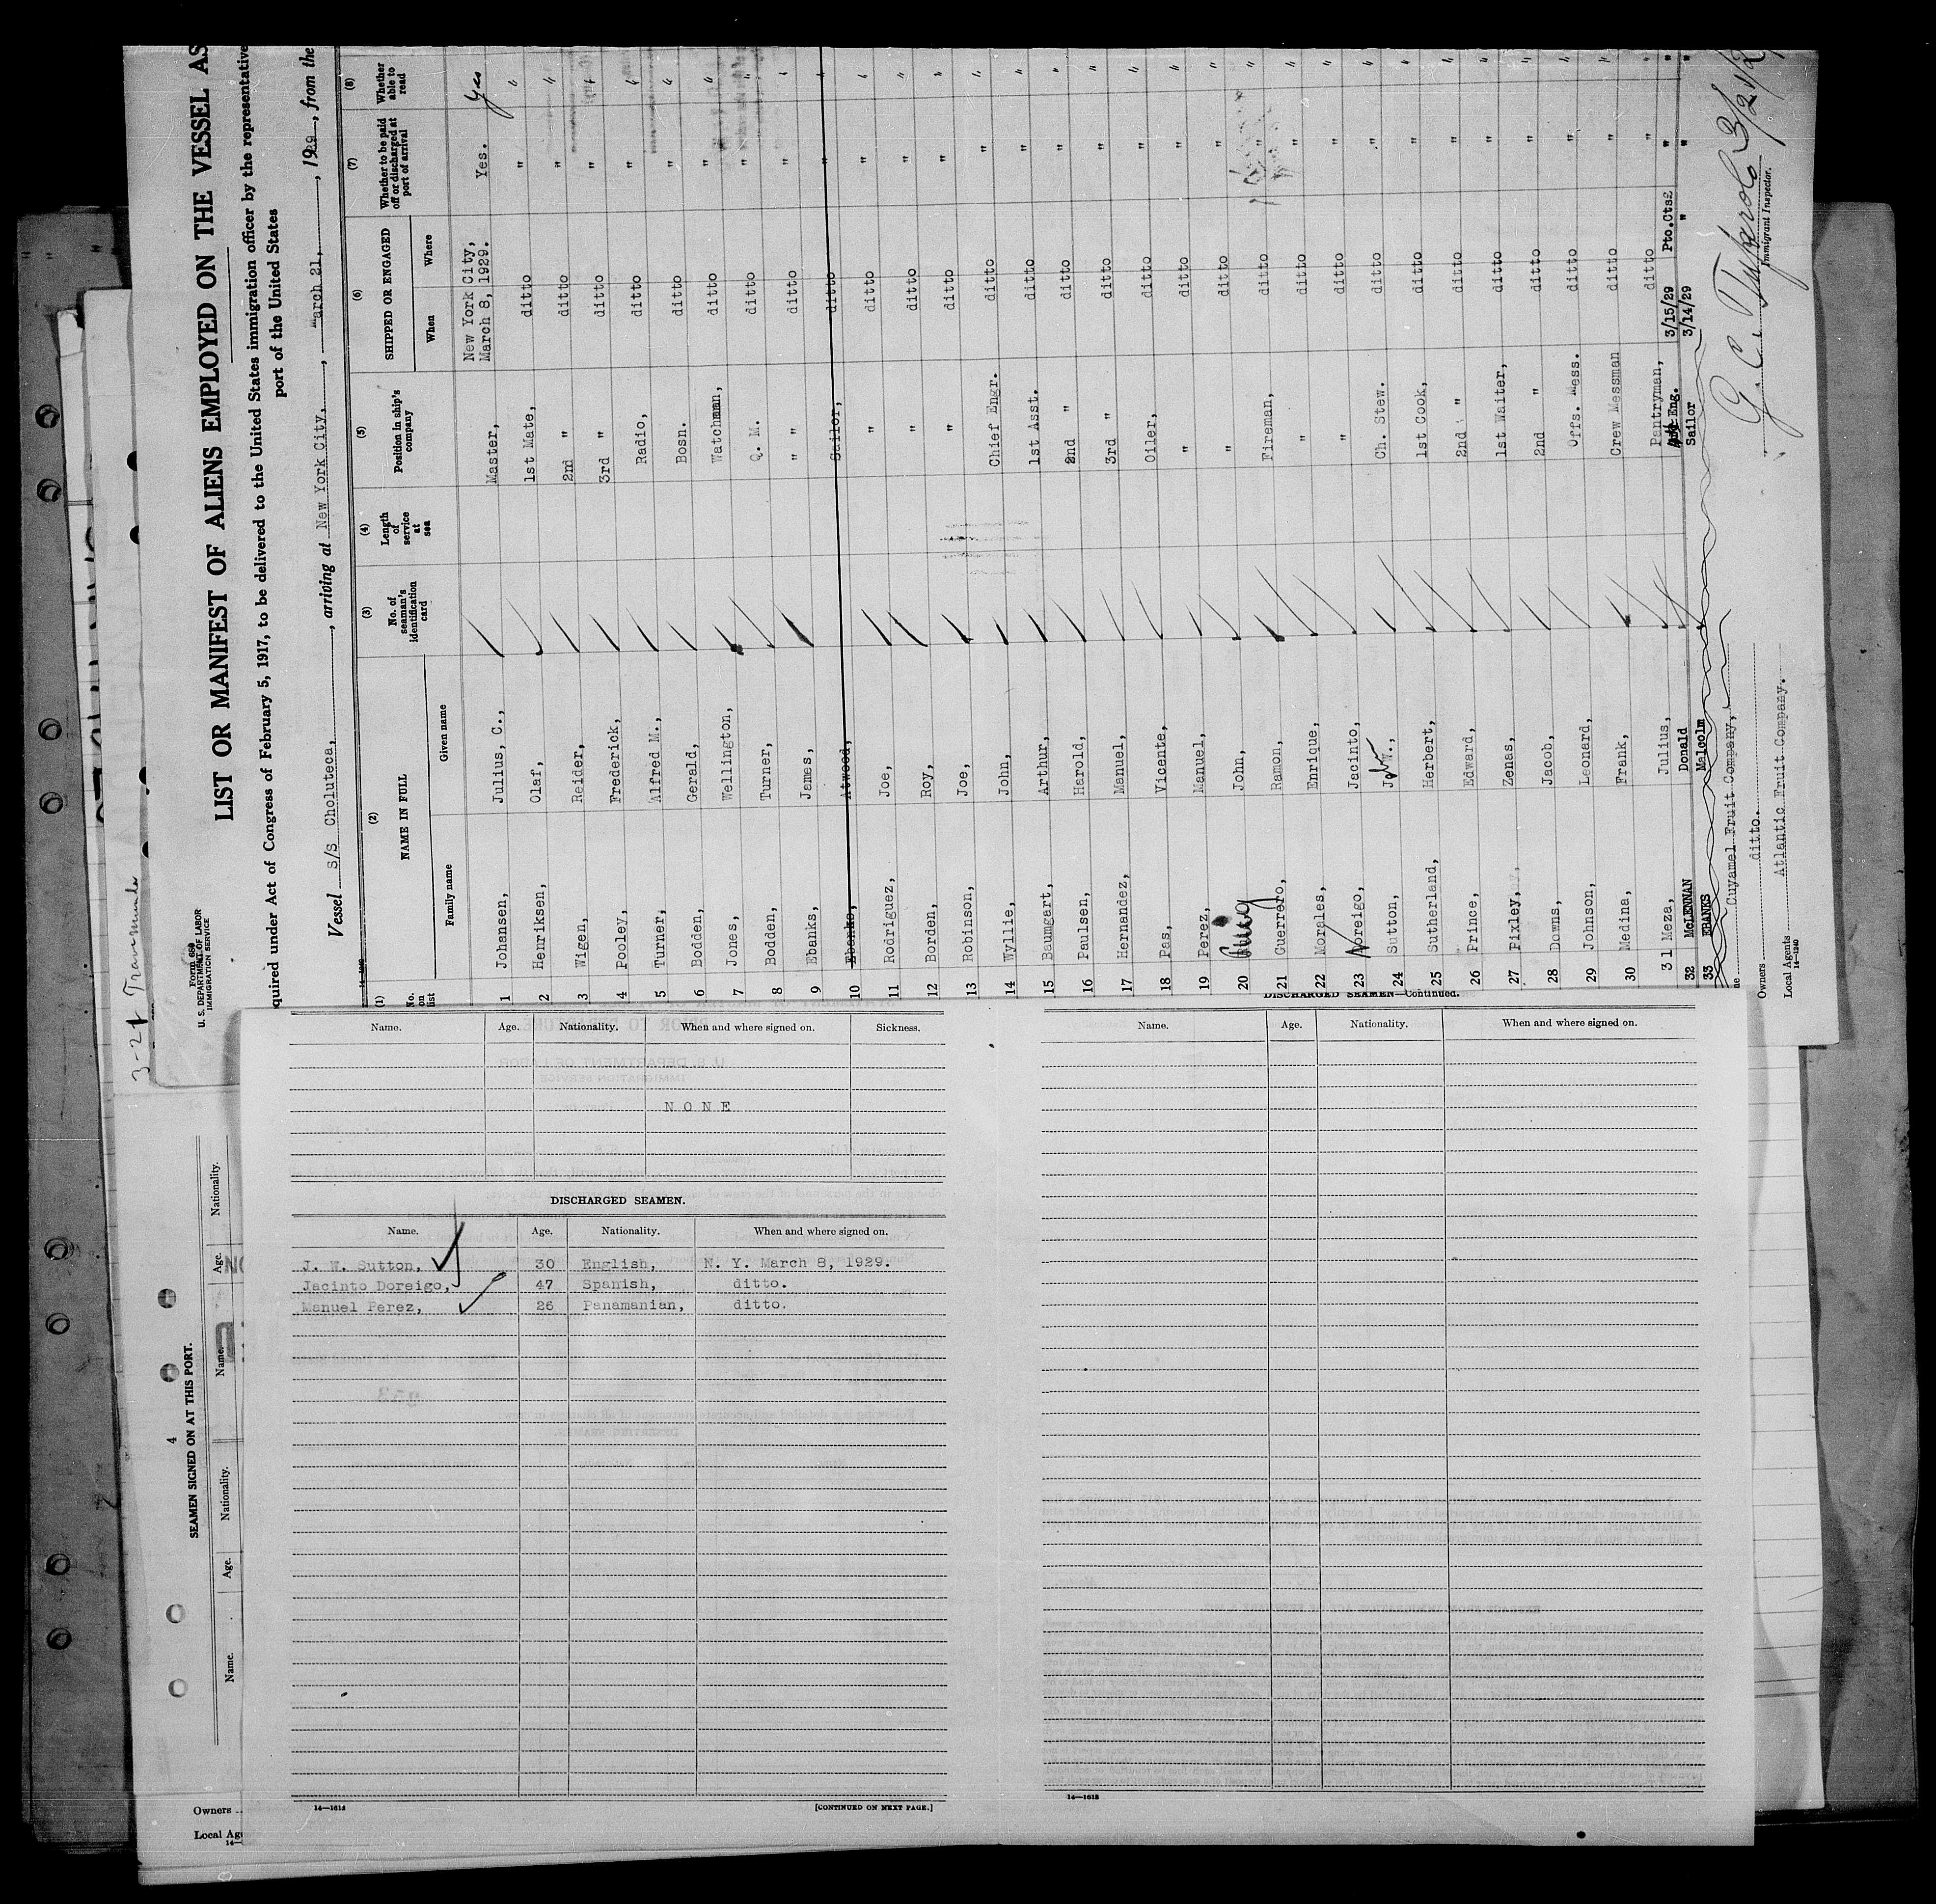 3-21 Transmundo
Form 680
U. S. DEPARTMENT OF LABOR
IMMIGRATION SERVICE
LIST OR MANIFEST OF ALIENS EMPLOYED ON THE VESSEL AS
quired under Act of Congress of February 5, 1917, to be delivered to the United States immigration officer by the representative
port of the United States
Vessel S/S Choluteca, , arriving at New York City, , March 21, , 1929, from the
(1) (2) (3) (4) (5) (6) (7) (8)
No. on list NAME IN FULL No. of seaman's identification card Length of service at sea Position in ship's company SHIPPED OR ENGAGED Whether to be paid off or discharged at port of arrival Whether able to read
Family name Given name When Where
1 Johansen, Julius, C., Master, New York City, March 8, 1929. Yes. yes
2 Henriksen, Olaf, 1st Mate, ditto " "
3 Wigen, Reider, 2nd " ditto " "
4 Pooley, Frederick, 3rd " ditto " "
5 Turner, Alfred M., Radio, ditto " "
6 Bodden, Gerald, Bosn. ditto " "
7 Jones, Wellington, Watchman, ditto " "
8 Bodden, Turner, Q. M. ditto " "
9 Ebanks, James, " " ditto " "
10 Ebanks, Atwood, Sailor, ditto " "
11 Rodriguez, Joe, " ditto " "
12 Borden, Roy, " ditto " "
13 Robinson, Joe, " ditto " "
14 Wyllie, John, Chief Engr. ditto " "
15 Baumgart, Arthur, 1st Asst. ditto " "
16 Paulsen, Harold, 2nd " ditto " "
17 Hernandez, Manuel, 3rd " ditto " "
18 Pas, Vicente, Oiler, ditto " "
19 Perez, Manuel, " ditto " "
20 John, " ditto " "
21 Guerrero, Ramon, Fireman, ditto " "
22 Morales, Enrique, " ditto " "
23 Noreigo, Jacinto, " ditto " "
24 Sutton, John W., Ch. Stew. ditto " "
25 Sutherland, Herbert, 1st Cook, ditto " "
26 Prince, Edward, 2nd " ditto " "
27 Pixley, Zenas, 1st Waiter, ditto " "
28 Downs, Jacob, 2nd " ditto " "
29 Johnson, Leonard, Offs. Mess. ditto " "
30 Medina, Frank, Crew Messman ditto " "
31 Meza, Julius, Pantryman, ditto " "
32 McLENNAN Donald Eng. 3/15/29 Pto.Cts. " "
33 EBANKS Malcolm Sailor 3/14/29 " " "
Cuyamel Fruit Company,
Owners ditto.
Local Agents Atlantic Fruit Company.
14-1240
3/21/29
Immigrant Inspector.
Name. Age. Nationality. When and where signed on. Sickness.
NONE
DISCHARGED SEAMEN.
Name. Age. Nationality. When and where signed on.
J. W. Sutton, 30 English, N. Y. March 8, 1929.
Jacinto Doreigo, 47 Spanish, ditto.
Manuel Perez, 26 Panamanian, ditto.
14—1614
[CONTINUED ON NEXT PAGE.]
DISCHARGED SEAMEN—Continued.
Name. Age. Nationality. When and where signed on.
14—1612
4
SEAMEN SIGNED ON AT THIS PORT.
Name. Age. Nationality. Name. Age. Nationality.
Owners
Local Ag
14—